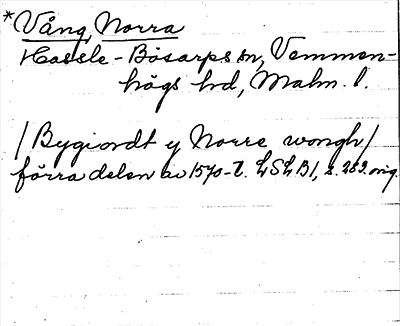 *Vång, Norra
Hassle-Bösarps sn, Vemmen-
högs hd, Malm. l.
/Bygiordt y Norre wongh/
förra delen av 1570-t. LSLB1, s. 283. orig.